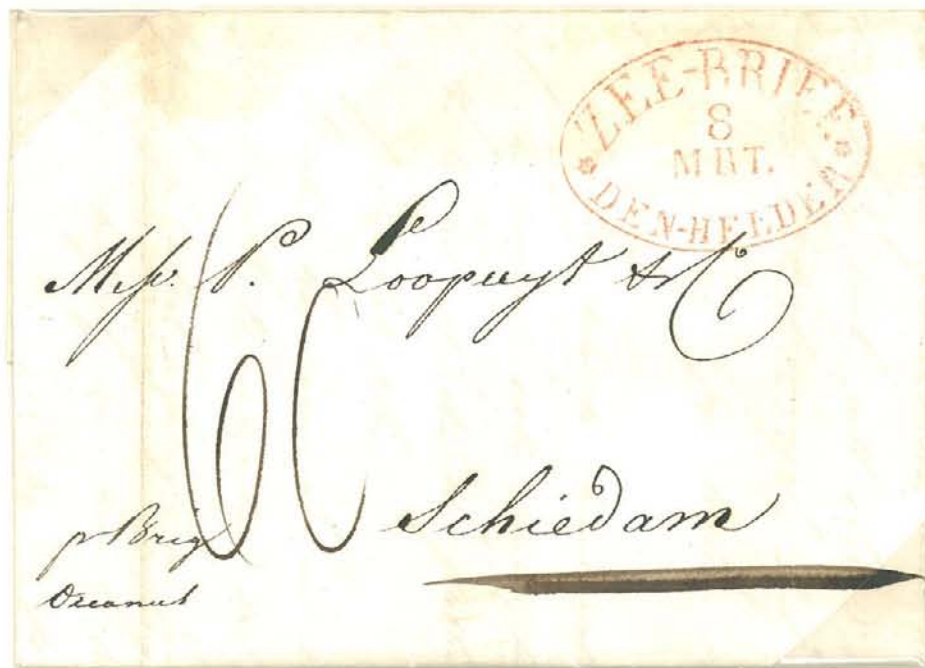 ZEE-BRIEF
8
MRT.
DEN-HELDER
Mess. P. Loopuyt & C
60
Schiedam
pr Brig